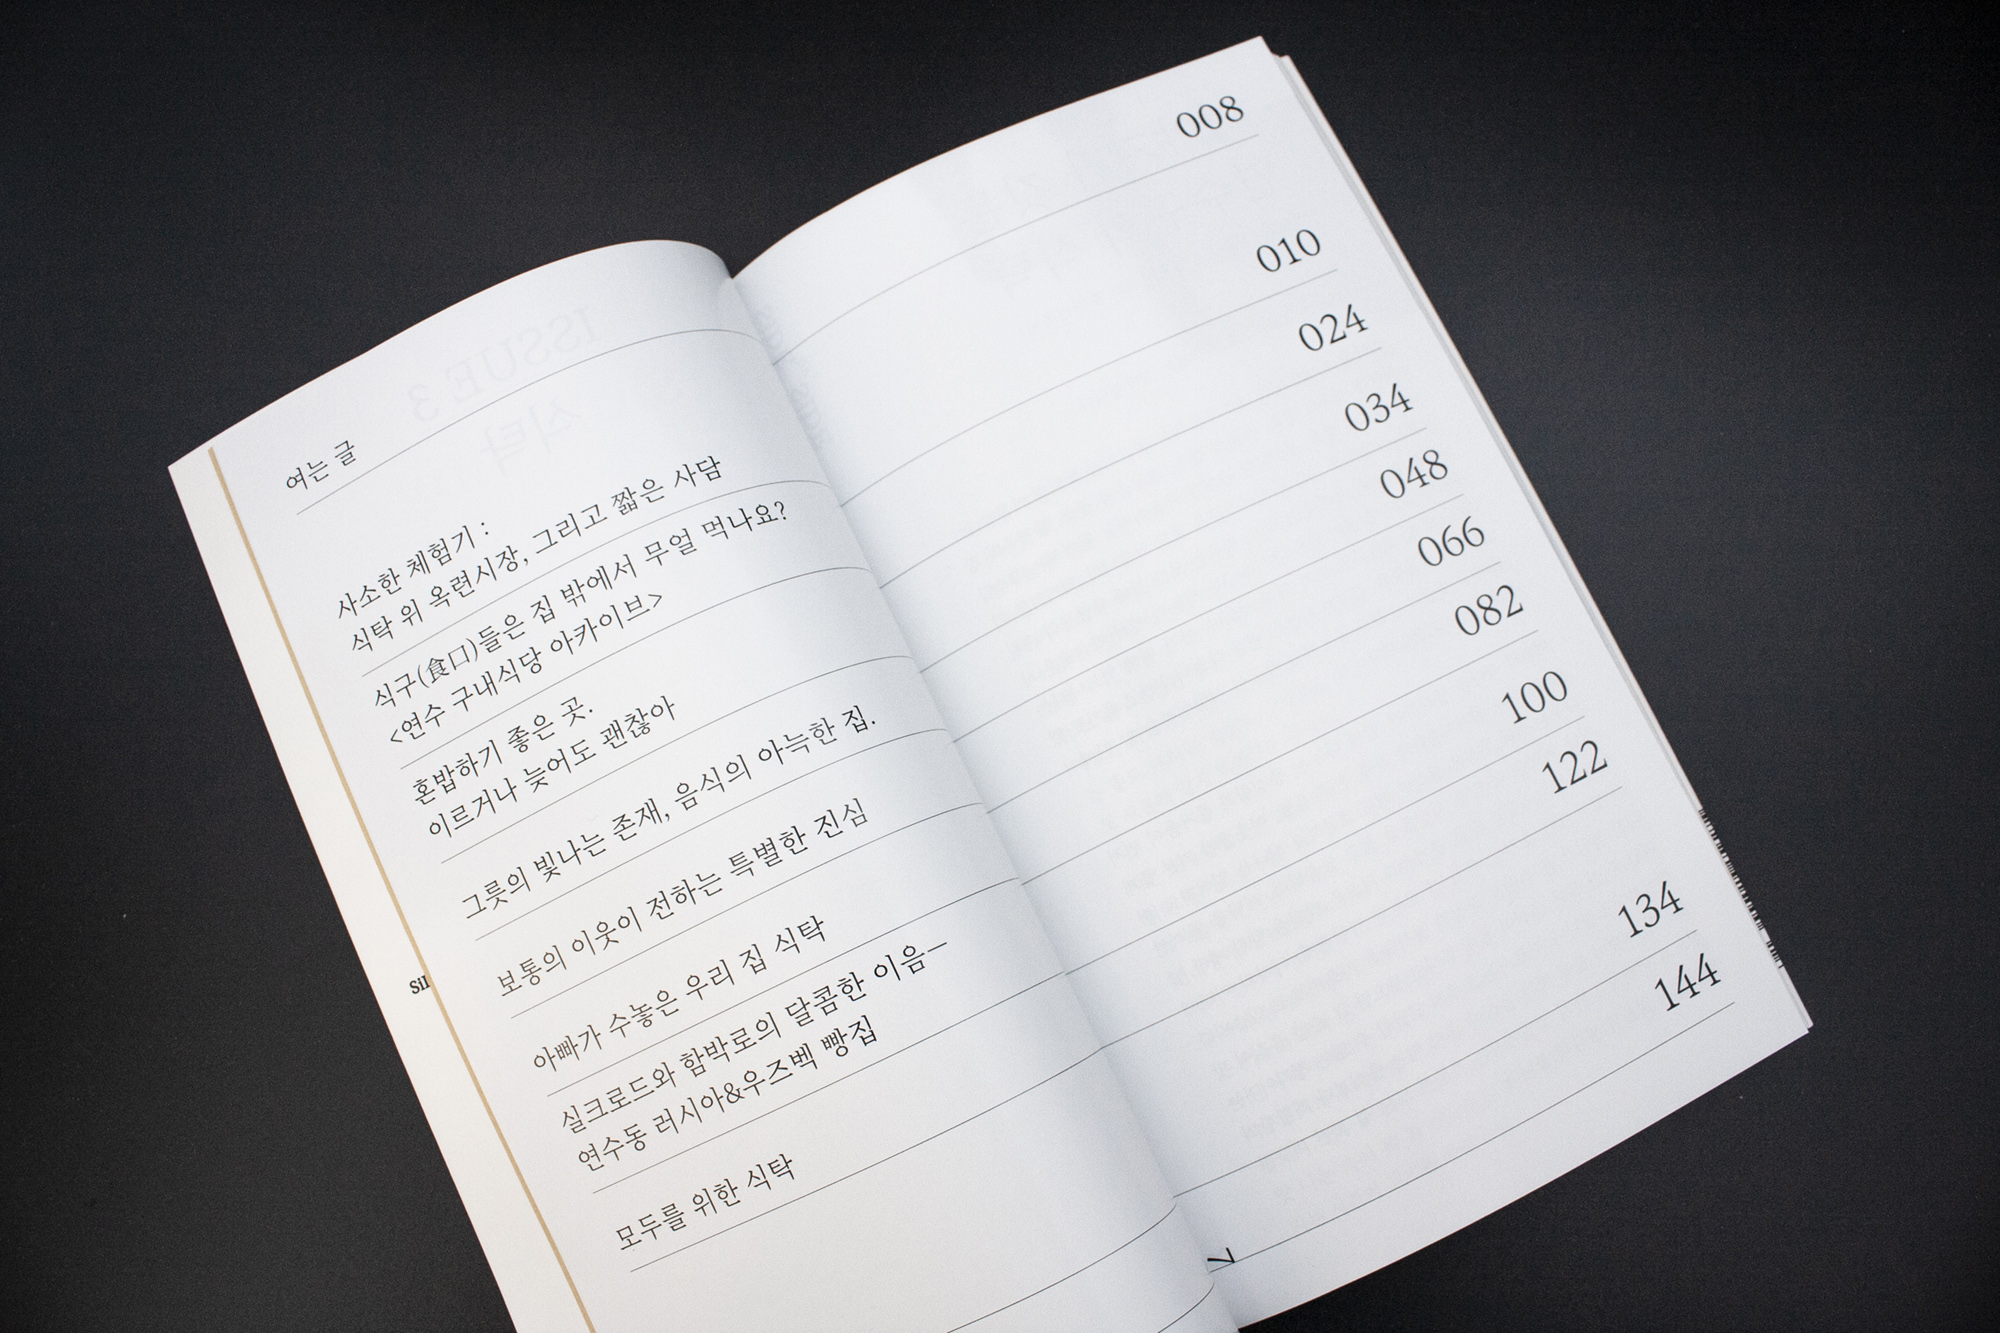 여는 글
008
사소한 체험기 :
식탁 위 옥련시장, 그리고 짧은 사담
010
식구(食口)들은 집 밖에서 무얼 먹나요?
<연수 구내식당 아카이브>
024
혼밥하기 좋은 곳.
이르거나 늦어도 괜찮아
034
그릇의 빛나는 존재, 음식의 아늑한 집.
048
보통의 이웃이 전하는 특별한 진심
066
아빠가 수놓은 우리 집 식탁
082
실크로드와 함박로의 달콤한 이음–
연수동 러시아&우즈벡 빵집
100
모두를 위한 식탁
122
134
144
7
ISSUE 3
식탁